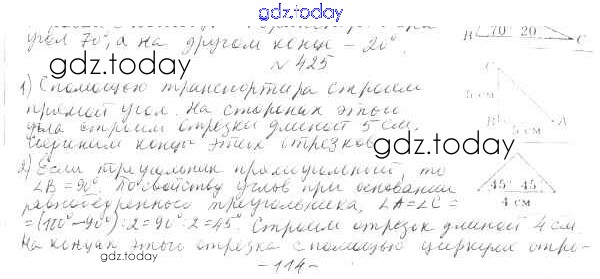 gdz.today
угол 70°, а на другом конце – 20°.
В 70° 20 С
№ 425
gdz.today
1) С помощью транспортира строим
прямой угол. На сторонах этого
угла строим отрезки длиной 5 см.
концы этих отрезков
gdz.today
С
5 см
В
5 см
А
2) Если треугольник прямоугольный, то
∠B = 90°. По свойству углов при основании
равнобедренного треугольника, ∠A = ∠C =
= (180° – 90°) : 2 = 90° : 2 = 45°. Строим отрезок длиной 4 см.
45° 45°
4 см
На концах этого отрезка с помощью циркуля отро-
– 114 –
gdz.today